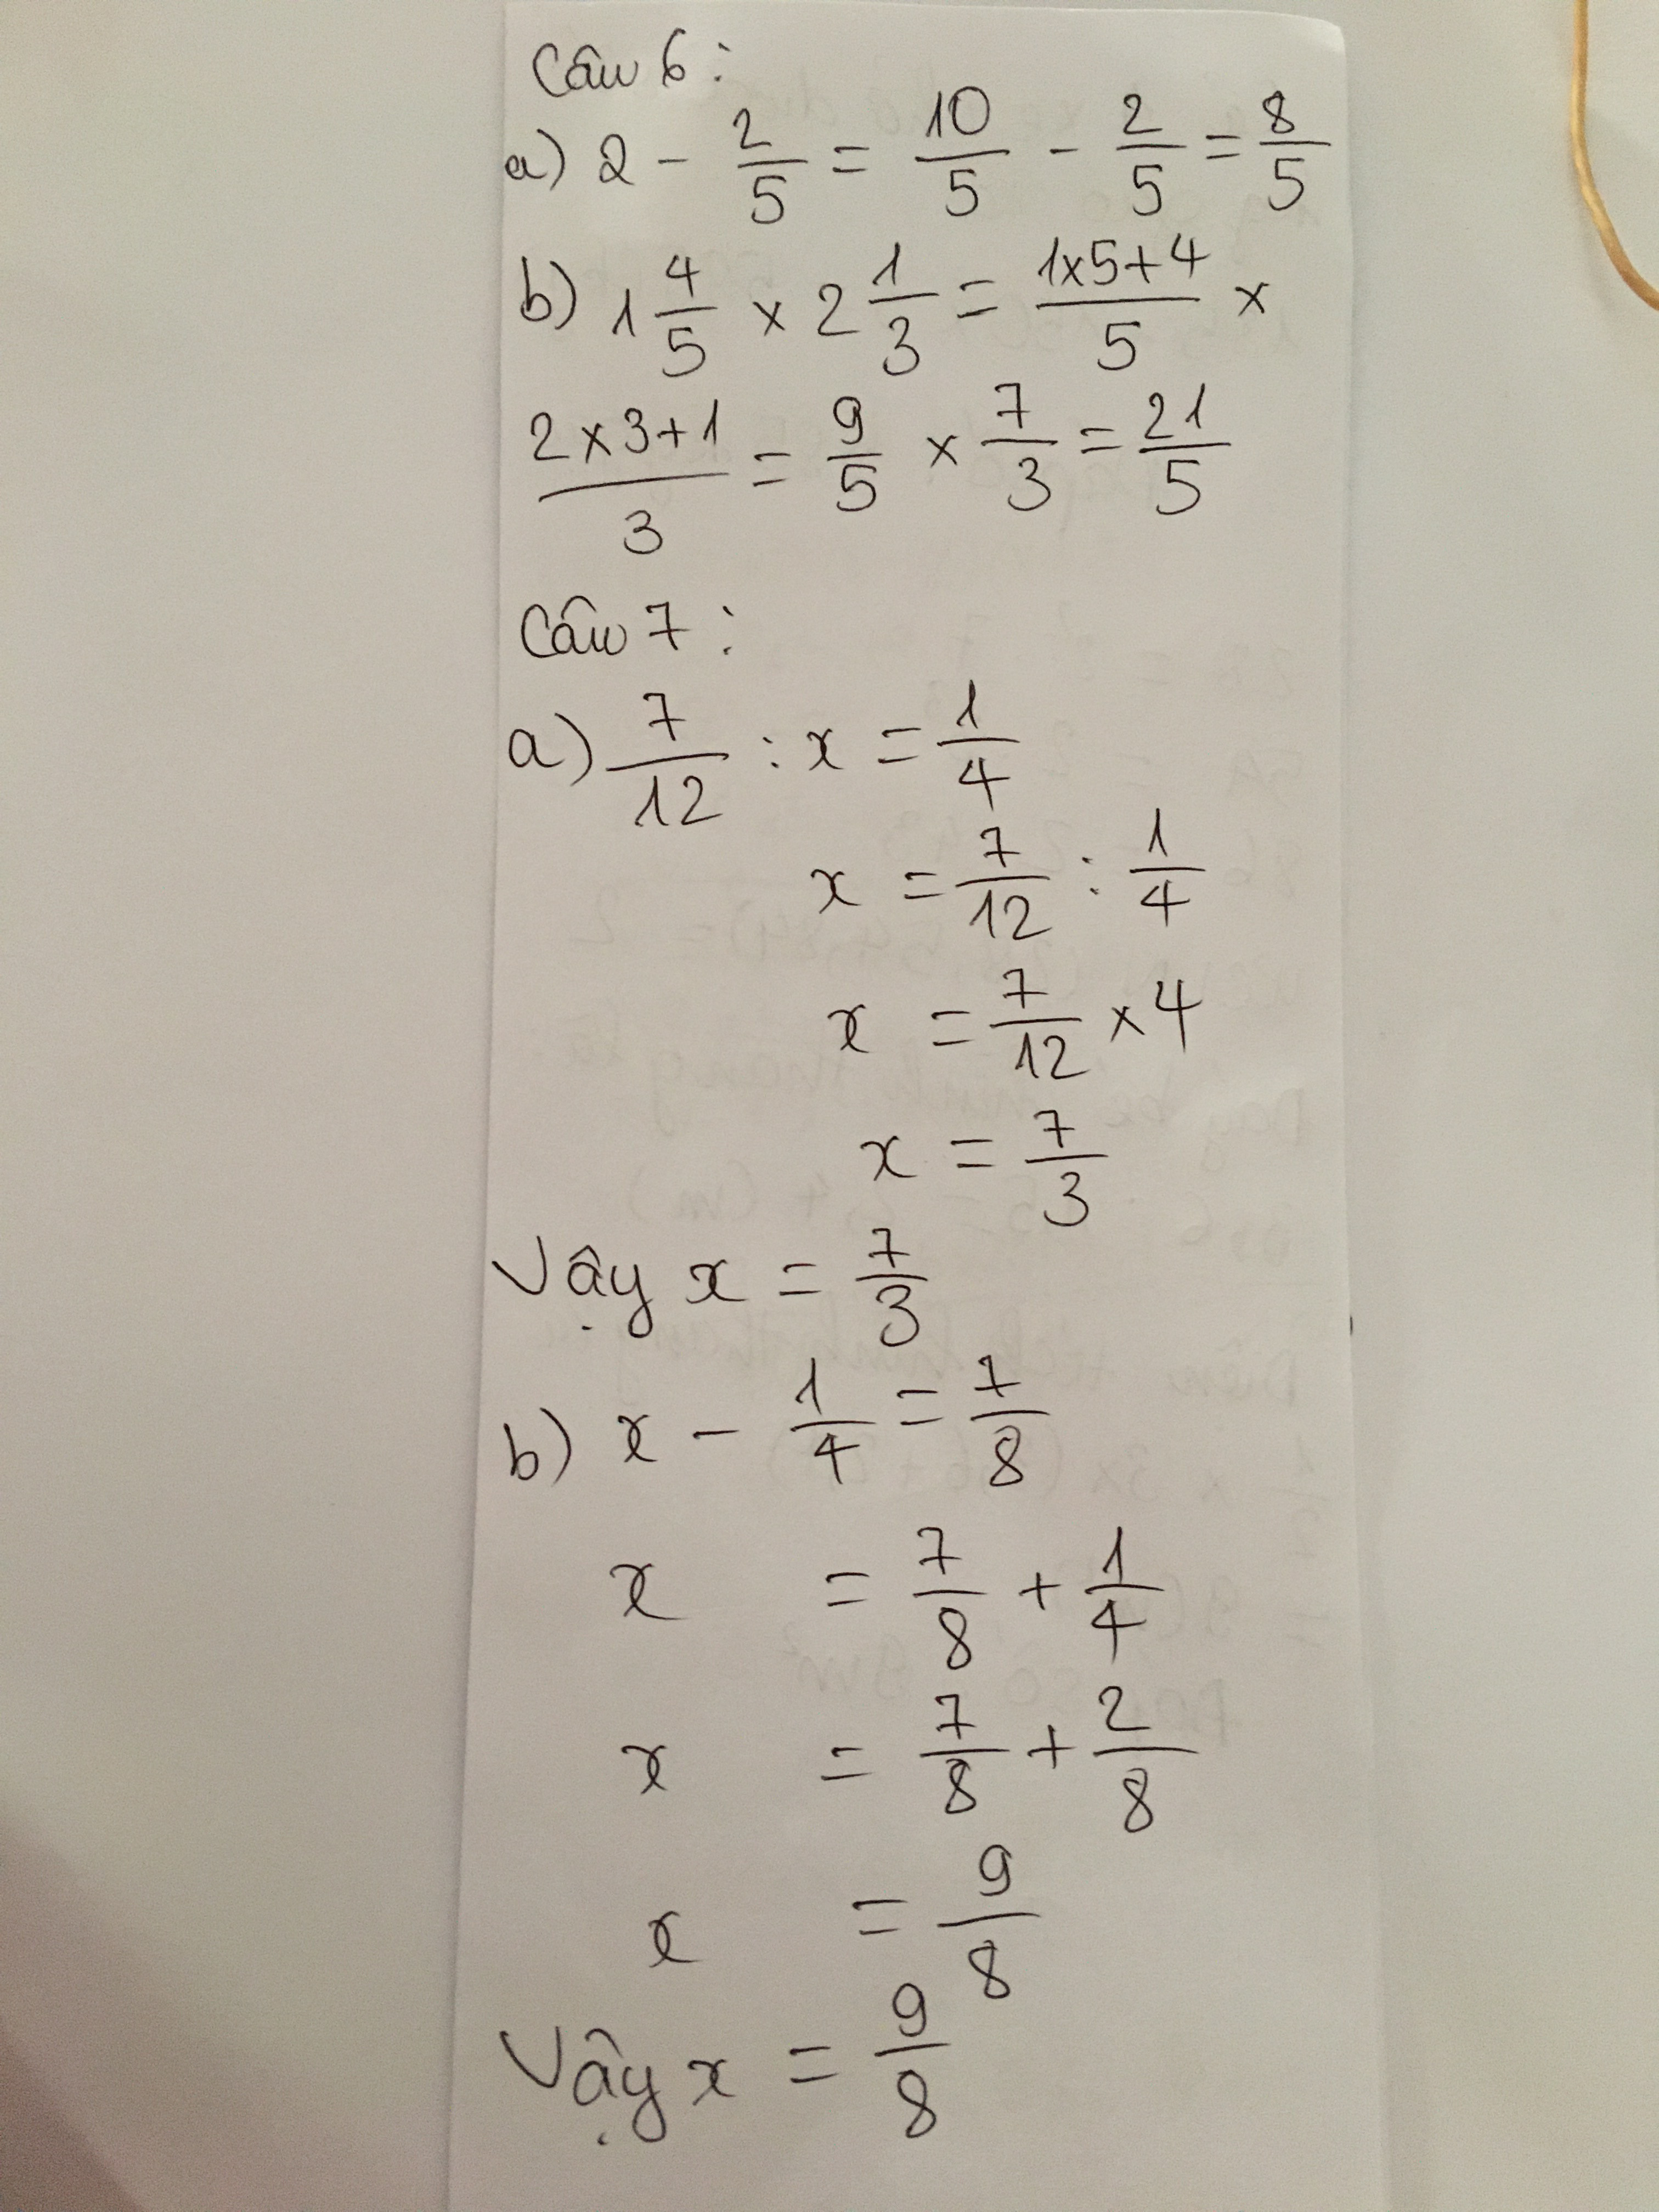 Câu 6:
a) 2 - 2/5 = 10/5 - 2/5 = 8/5
b) 1 4/5 x 2 1/3 = (1x5+4)/5 x
(2x3+1)/3 = 9/5 x 7/3 = 21/5
Câu 7:
a) 7/12 : x = 1/4
x = 7/12 : 1/4
x = 7/12 x 4
x = 7/3
Vậy x = 7/3
b) x - 1/4 = 7/8
x = 7/8 + 1/4
x = 7/8 + 2/8
x = 9/8
Vậy x = 9/8